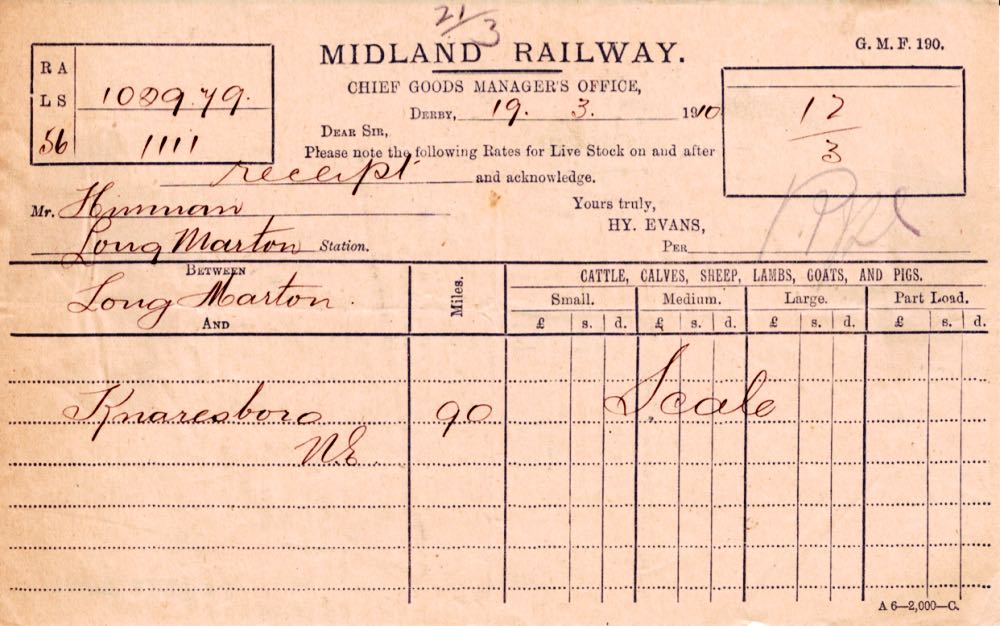 21/3
MIDLAND RAILWAY.
G. M. F. 190.
CHIEF GOODS MANAGER'S OFFICE,
R A
L S 1009.79.
56 1111
DERBY, 19. 3. 1910
17/3
DEAR SIR,
Please note the following Rates for Live Stock on and after
receipt and acknowledge.
Mr. Hinman
Yours truly,
HY. EVANS,
Long Marton Station.
PER
BETWEEN
Long Marton.
AND
Miles.
CATTLE, CALVES, SHEEP, LAMBS, GOATS, AND PIGS.
Small. Medium. Large. Part Load.
£ s. d. £ s. d. £ s. d. £ s. d.
Knaresboro 90 Scale
N.E.
A 6—2,000—C.